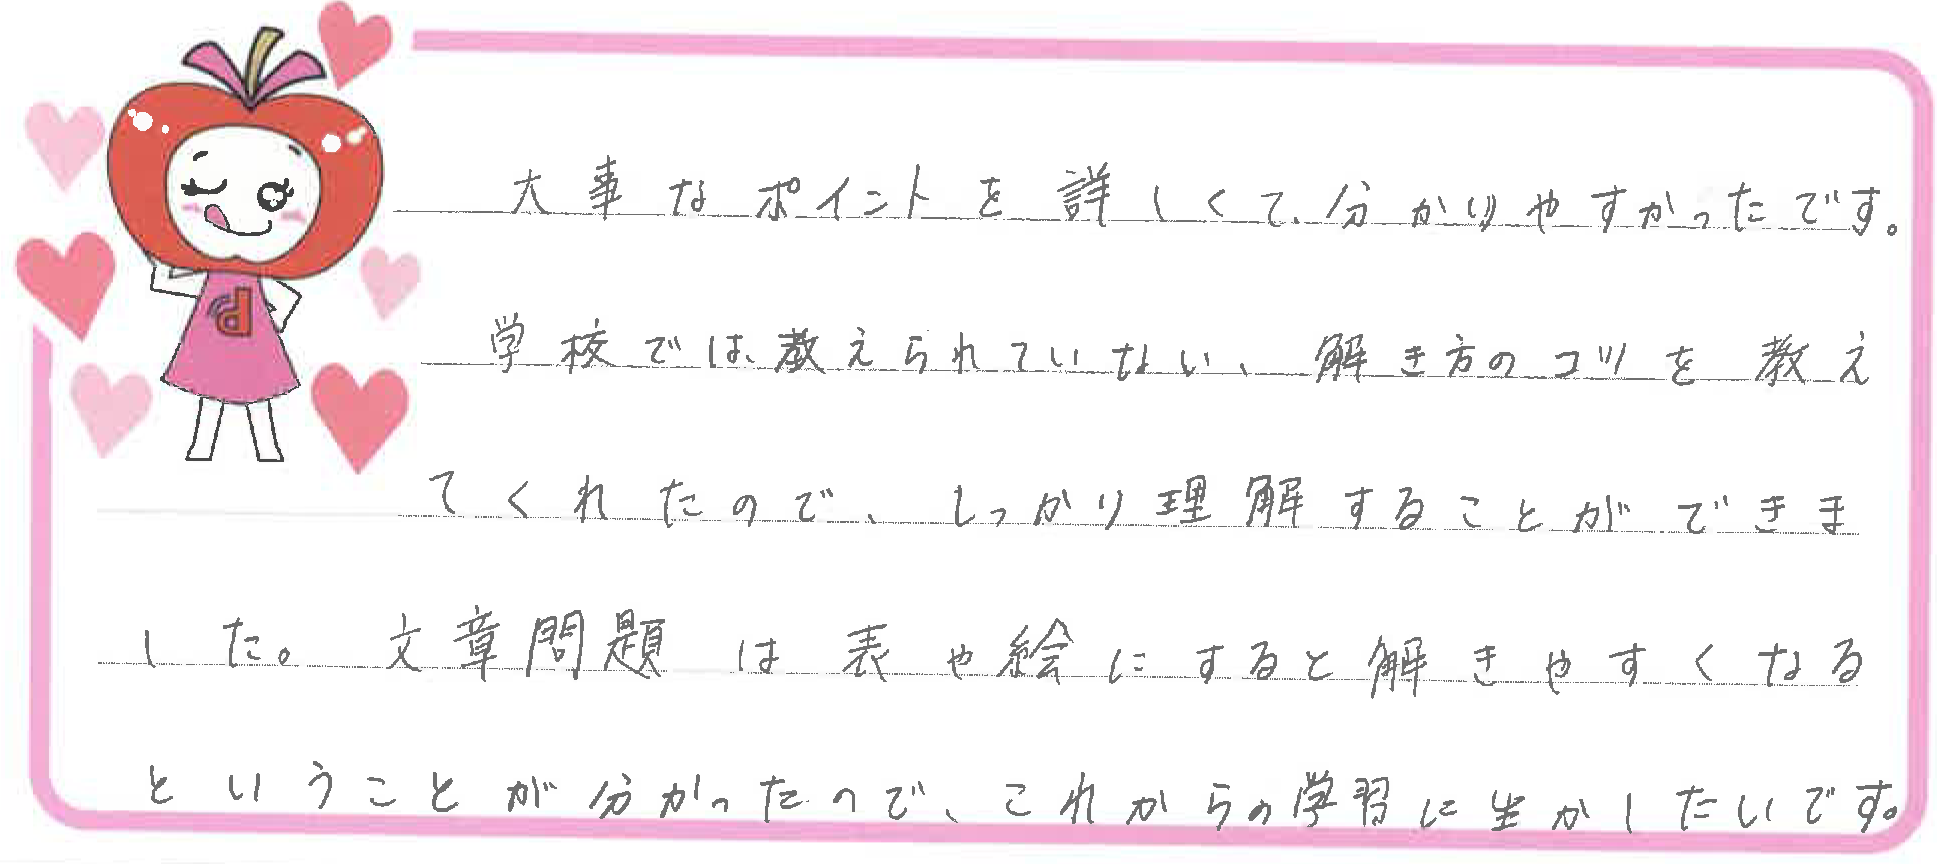 大事なポイントを詳しくて、分かりやすかったです。
学校では、教えられていない、解き方のコツを教え
てくれたので、しっかり理解することができま
した。文章問題は表や絵にすると解きやすくなる
ということが分かったので、これからの学習に生かしたいです。